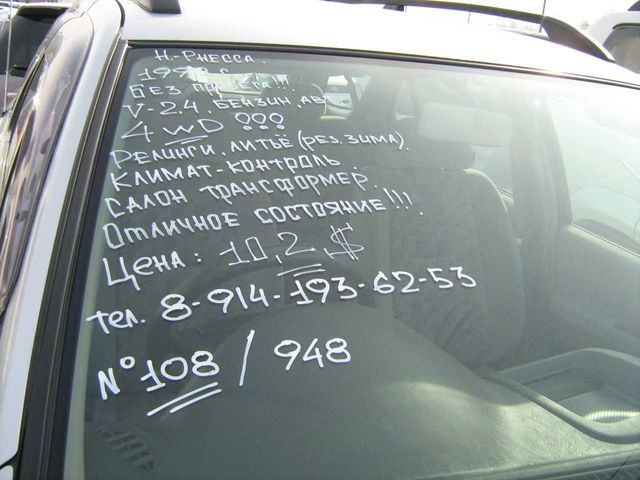 Н-РНЕССА.
БЕЗ ПРОБЕГА!!!
V-2.4. БЕНЗИН, АВТ
4 WD !!!
РЕЛИНГИ. ЛИТЬЁ (РЕЗ. ЗИМА).
КЛИМАТ-КОНТРОЛЬ.
САЛОН ТРАНСФОРМЕР.
ОТЛИЧНОЕ СОСТОЯНИЕ!!!.
ЦЕНА: 10,2,$
тел. 8-914-193-62-53
№ 108 / 948